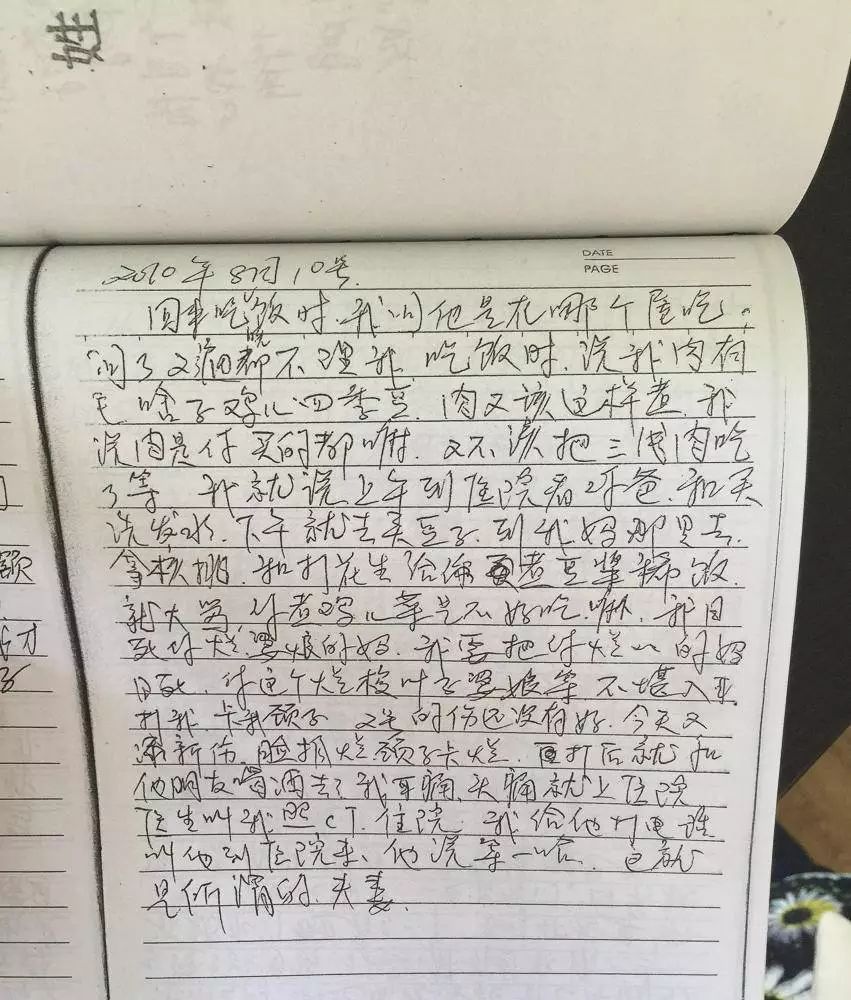 姓
DATE
PAGE
2010年8月10号
回来吃饭时.我问他是在哪个屋吃。
问了又问都不理我.吃饭时.说我肉有
毛.啥子鸡儿四季豆.肉又该这样煮.我
说肉是你买的都嘛.又不该把三线肉吃
了等.我就说上午到医院看你爸.和买
洗发水.下午就去买豆子.到我妈那里去.
拿核桃.和打花生给你煮豆浆稀饭.
就大骂.你煮鸡儿菜是不好吃.嘛.我日
死你烂婆娘的妈.我要把你烂的妈
日死.你这个烂婆娘等不堪入耳
打我.卡我颈子.又是的伤还没有好.今天又
添新伤.脸抓烂.颈子卡烂.打后就和
他朋友喝酒去了我耳痛.头痛就上医院
医生叫我照CT.住院.我给他打电话
叫他到医院来、他说等一哈.这就
是所谓的.夫妻.
额
才